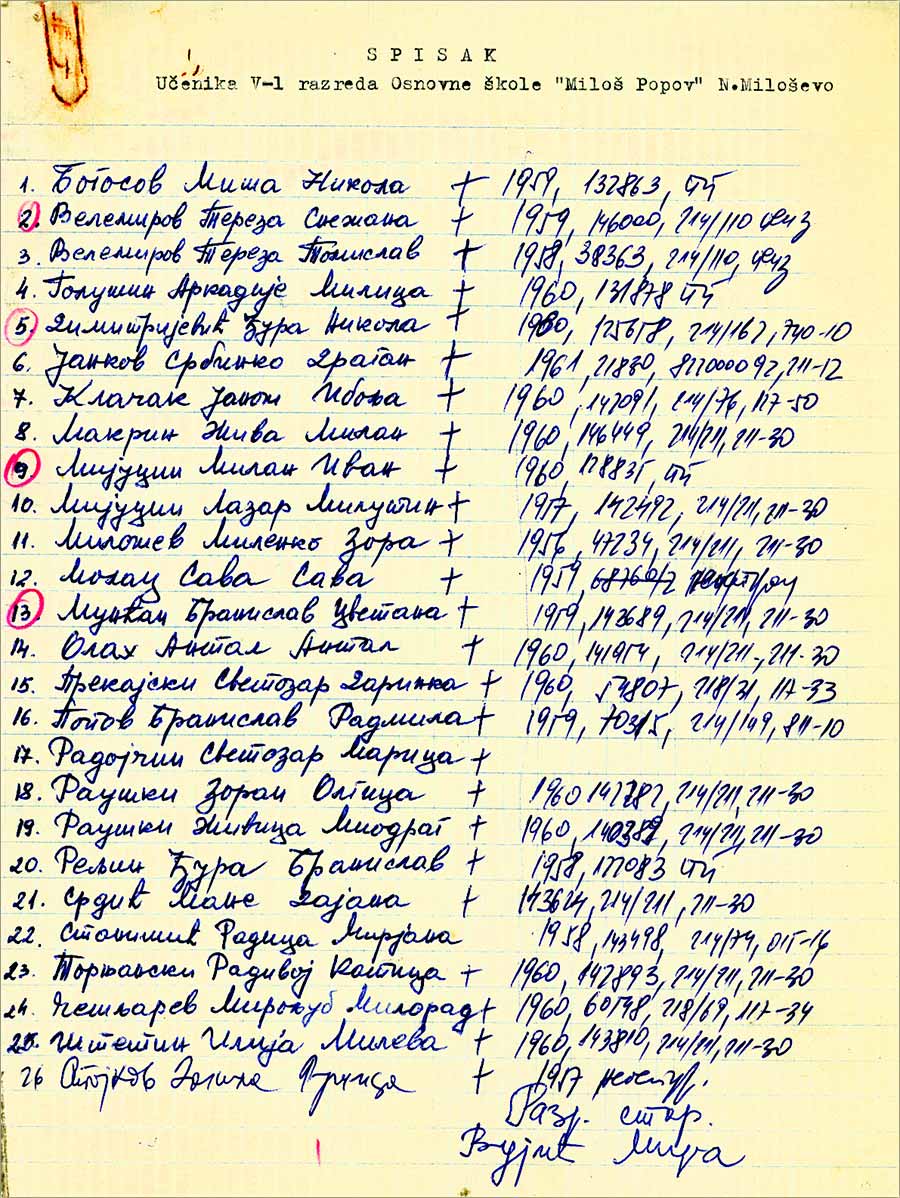 S P I S A K
Učenika V-1 razreda Osnovne škole "Miloš Popov" N.Miloševo
1. Ботосов Миша Никола + 1959, 132863,
2. Велемиров Тереза Снежана + 1959, 146000, 214/110
3. Велемиров Тереза Томислав + 1958, 38363, 214/110,
4. Голушин Аркадије Милица + 1960, 131878
5. Димитријевић Ђура Никола + 1960, 125658, 214/162, 740-10
6. Јанков Србинко Драган + 1961, 21830, 82700092, 211-12
7. Клачак Јанош Ибоља + 1960, 142091, 214/76, 117-50
8. Макрин Жива Милан + 1960, 146449, 214/211, 211-30
9. Мијуцин Милан Иван + 1960
10. Мијуцин Лазар Милутин + 1957, 142492, 214/211, 211-30
11. Милошев Миленко Зора + 1956, 47234, 214/211, 211-30
12. Молац Сава Сава + 1959,
13. Мункан Бранислав Цветана + 1959, 143689, 214/211, 211-30
14. Олах Антал Антал + 1960, 141954, 214/211, 211-30
15. Прекајски Светозар Даринка + 1960, 54807, 218/31, 117-33
16. Попов Бранислав Радмила + 1959, 70315, 214/149, 811-10
17. Радојчин Светозар Марица +
18. Раушки Зоран Олгица + 1960 214/211, 211-30
19. Раушки Живица Миодраг + 1960, 214/211, 211-30
20. Рељин Ђура Бранислав + 1958, 177083
21. Срдић Мане Дајана + 143624, 214/211, 211-30
22. Станимић Радица Мирјана 1958, 143498, 214/74, 015-16
23. Торжански Радивој Катица + 1960, 142893, 214/211, 211-30
24. Чешљарев Мирољуб Милорад + 1960, 60548, 218/69, 117-34
25. Штетин Илија Милева + 1960, 143810, 214/211, 211-30
26 Стојков + 1957
Разр. стар.
Вујић Мира